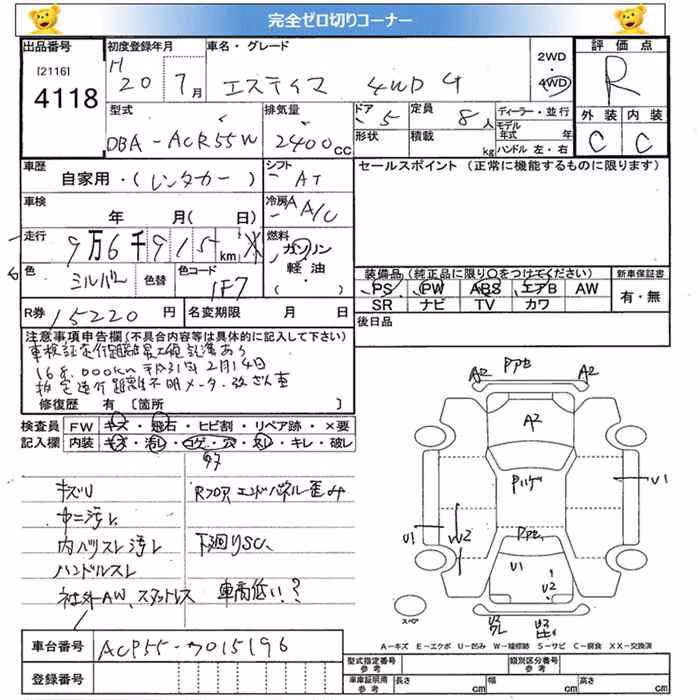 完全ゼロ切りコーナー
出品番号 初度登録年月 車名・グレード 2WD 評価点
[2116] H 20 7月 エスティマ 4WD G 4WD R
4118
型式 排気量 ドア 5 定員 8人 ディーラー・並行 外装 内装
DBA-ACR55W 2400cc 形状 積載 kg モデル年式 年 C C
ハンドル左・右
車歴 自家用・(レンタカー) シフト AT セールスポイント (正常に機能するものに限ります)
車検 年 月( 日) 冷房A A/C
走行 9万6千915km 燃料 ガソリン
軽油
( )
色 シルバー 色替 色コード 1F7
装備品 (純正品に限り○をつけてください) 新車保証書
PS PW ABS エアB AW 有・無
SR ナビ TV カワ
R券 15220円 名変期限 月 日 後日品
注意事項申告欄(不具合内容等は具体的に記入して下さい)
168,000km 平成31年2月14日
走行距離不明メーター改ざん車
修復歴 有〔箇所 〕
検査員 FW キズ・飛石・ヒビ割・リペア跡・×要
記入欄 内装 キズ・汚レ・コゲ・穴・スレ・キレ・破レ
キズU Rフロア エンドパネル歪み
中ニ汚レ
内ハリスレ汚レ 下廻りSC、
ハンドルスレ
社外AW、スタットレス 車高低い?
A2 Pアセ A2
A2
Pハゲ
U1 W2 Pアセ U1
U1
U2
スペア
A-キズ E-エクボ U-凹み W-補修跡 S-サビ C-腐食 XX-交換済
車台番号 ACR55-7015196
登録番号
型式指定番号 参考 類別区分番号 参考
車庫証明用 参考 長さ cm 幅 cm 高さ cm